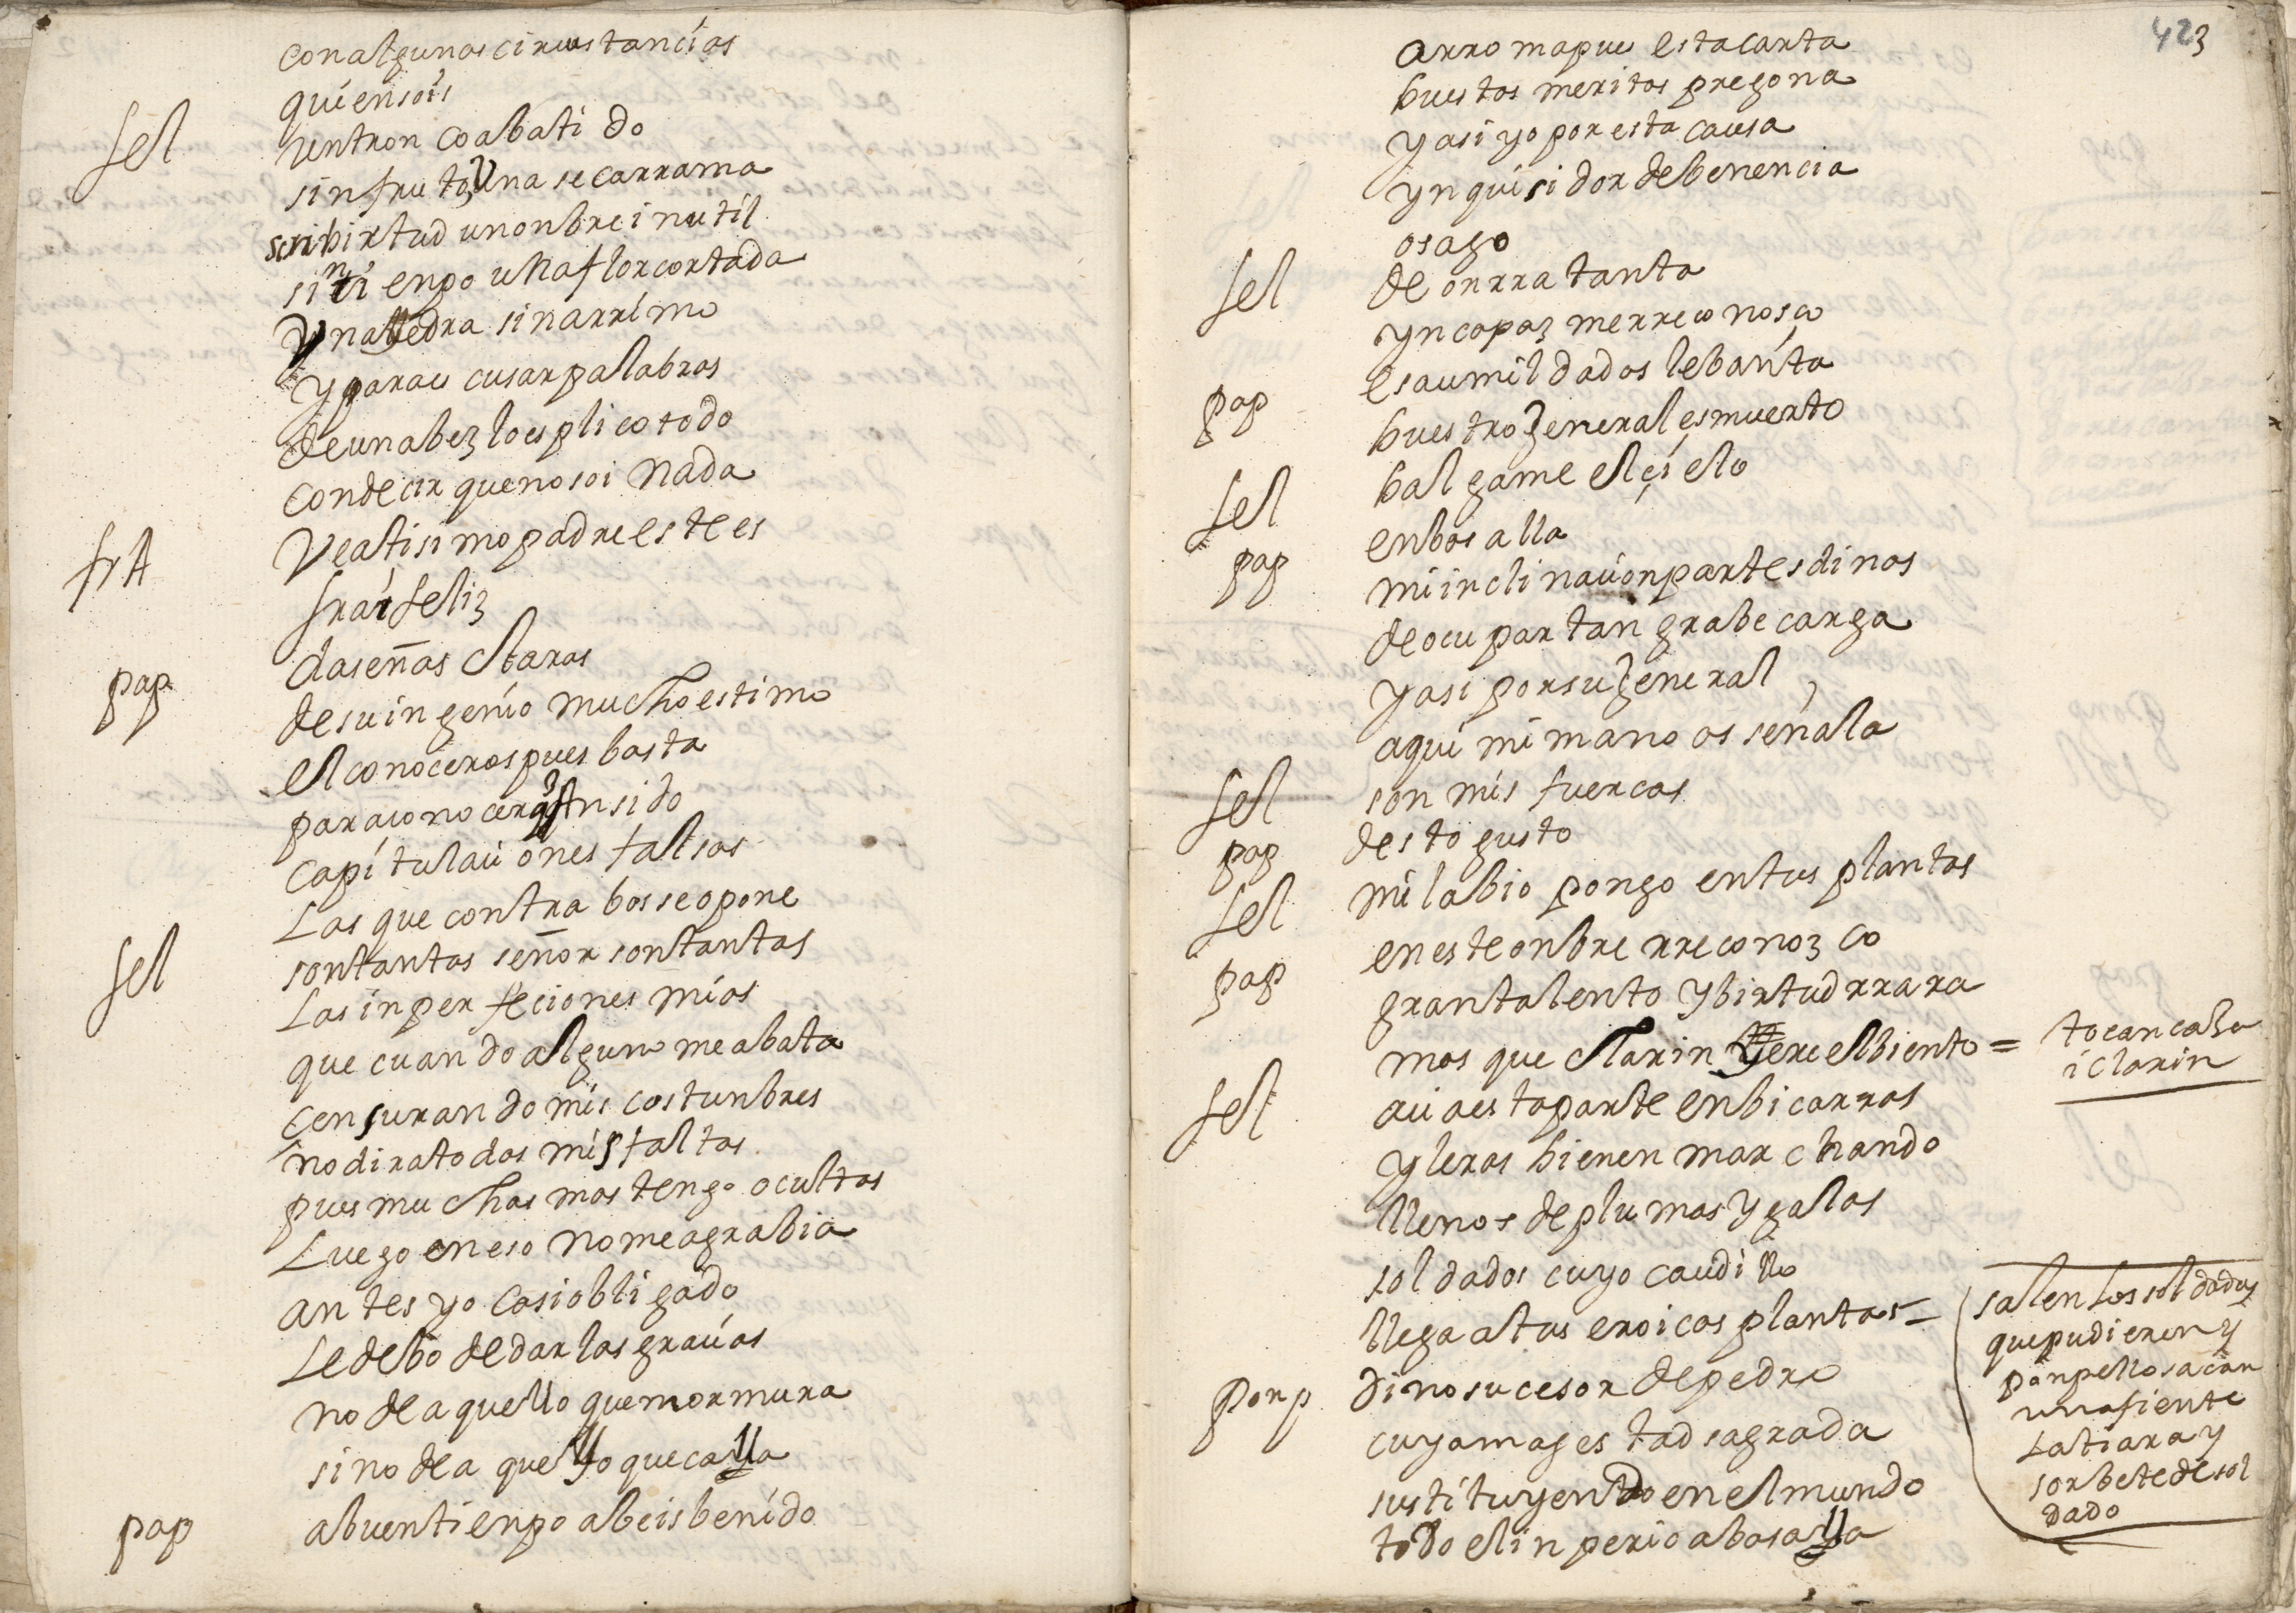 con algunas circustancias
quien sois
fel un tronco abatido
sin fruto, una seca rrama
sin birtud un onbre inutil
sin tienpo una flor cortada
una yedra sin arrimo
y para escusar palabras
de una bez lo esplico todo
con decir que no soi nada
fr A Veatisimo padre este es
frai feliz
pap da señas claras
de su ingenio mucho estimo
el conoceros pues basta
para conocer q an sido
capitulaciones falsas
Las que contra bos se opone
fel son tantas señor son tantas
Las inperfeciones mias
que cuando alguno me abata
censurando mis costunbres
no dira todas mis faltas
pues muchas mas tengo ocultas
Luego en eso no me agrabia
antes yo casi obligado
Le debo de dar las gracias
no de aquello que mormura
sino de aquello que calla
pap a buen tienpo abeis benido
423
a rroma pues esta carta
buestos meritos pregona
y asi yo por esta causa
ynquisidor de benencia
os ago
fel de onrra tanta
yncapaz me rreconosco
pap es a umildados lebanta
buestro general es muerto
fel balgame el çielo
pap en bos alla
mi inclinacion partes dinas
de ocupar tan grabe carga
y asi por su general
aqui mi mano os señala
fel son mis fuercas
pap desto gusto
fel mi labio pongo en tus plantas
pap en este onbre rreconozco
gran talento y birtud rrara
mas que clarin yere el biento =
tocan caxa
i clarin
fel acia esta parte en bicarras
yleras bienen marchando
llenos de plumas y galas
soldados cuyo caudillo
llega a tus eroicas plantas =
salen Los soldados
que pudieren y
ponpello sacan
una fiente
La tiara y
sorbete de sol
dado
ponp Dino sucesor de pedro
cuya magestad sagrada
sustituyendo en el mundo
todo el inperio abasalla